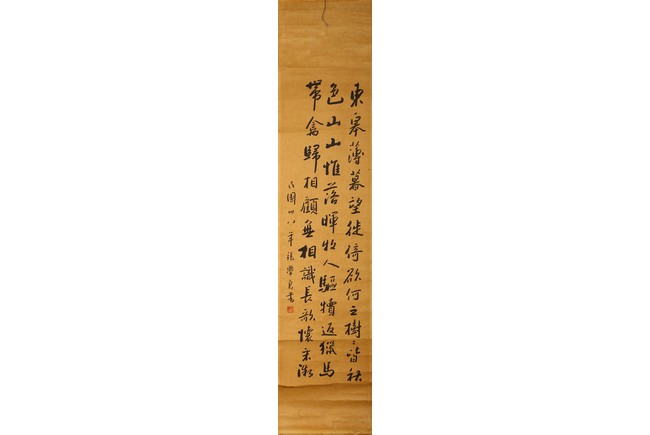 東皋薄暮望徙倚欲何之樹〻皆秋
色山山惟落暉牧人驅犢返獵馬
帶禽歸相顧無相識長歌懷采薇
民國廿八年張學良書